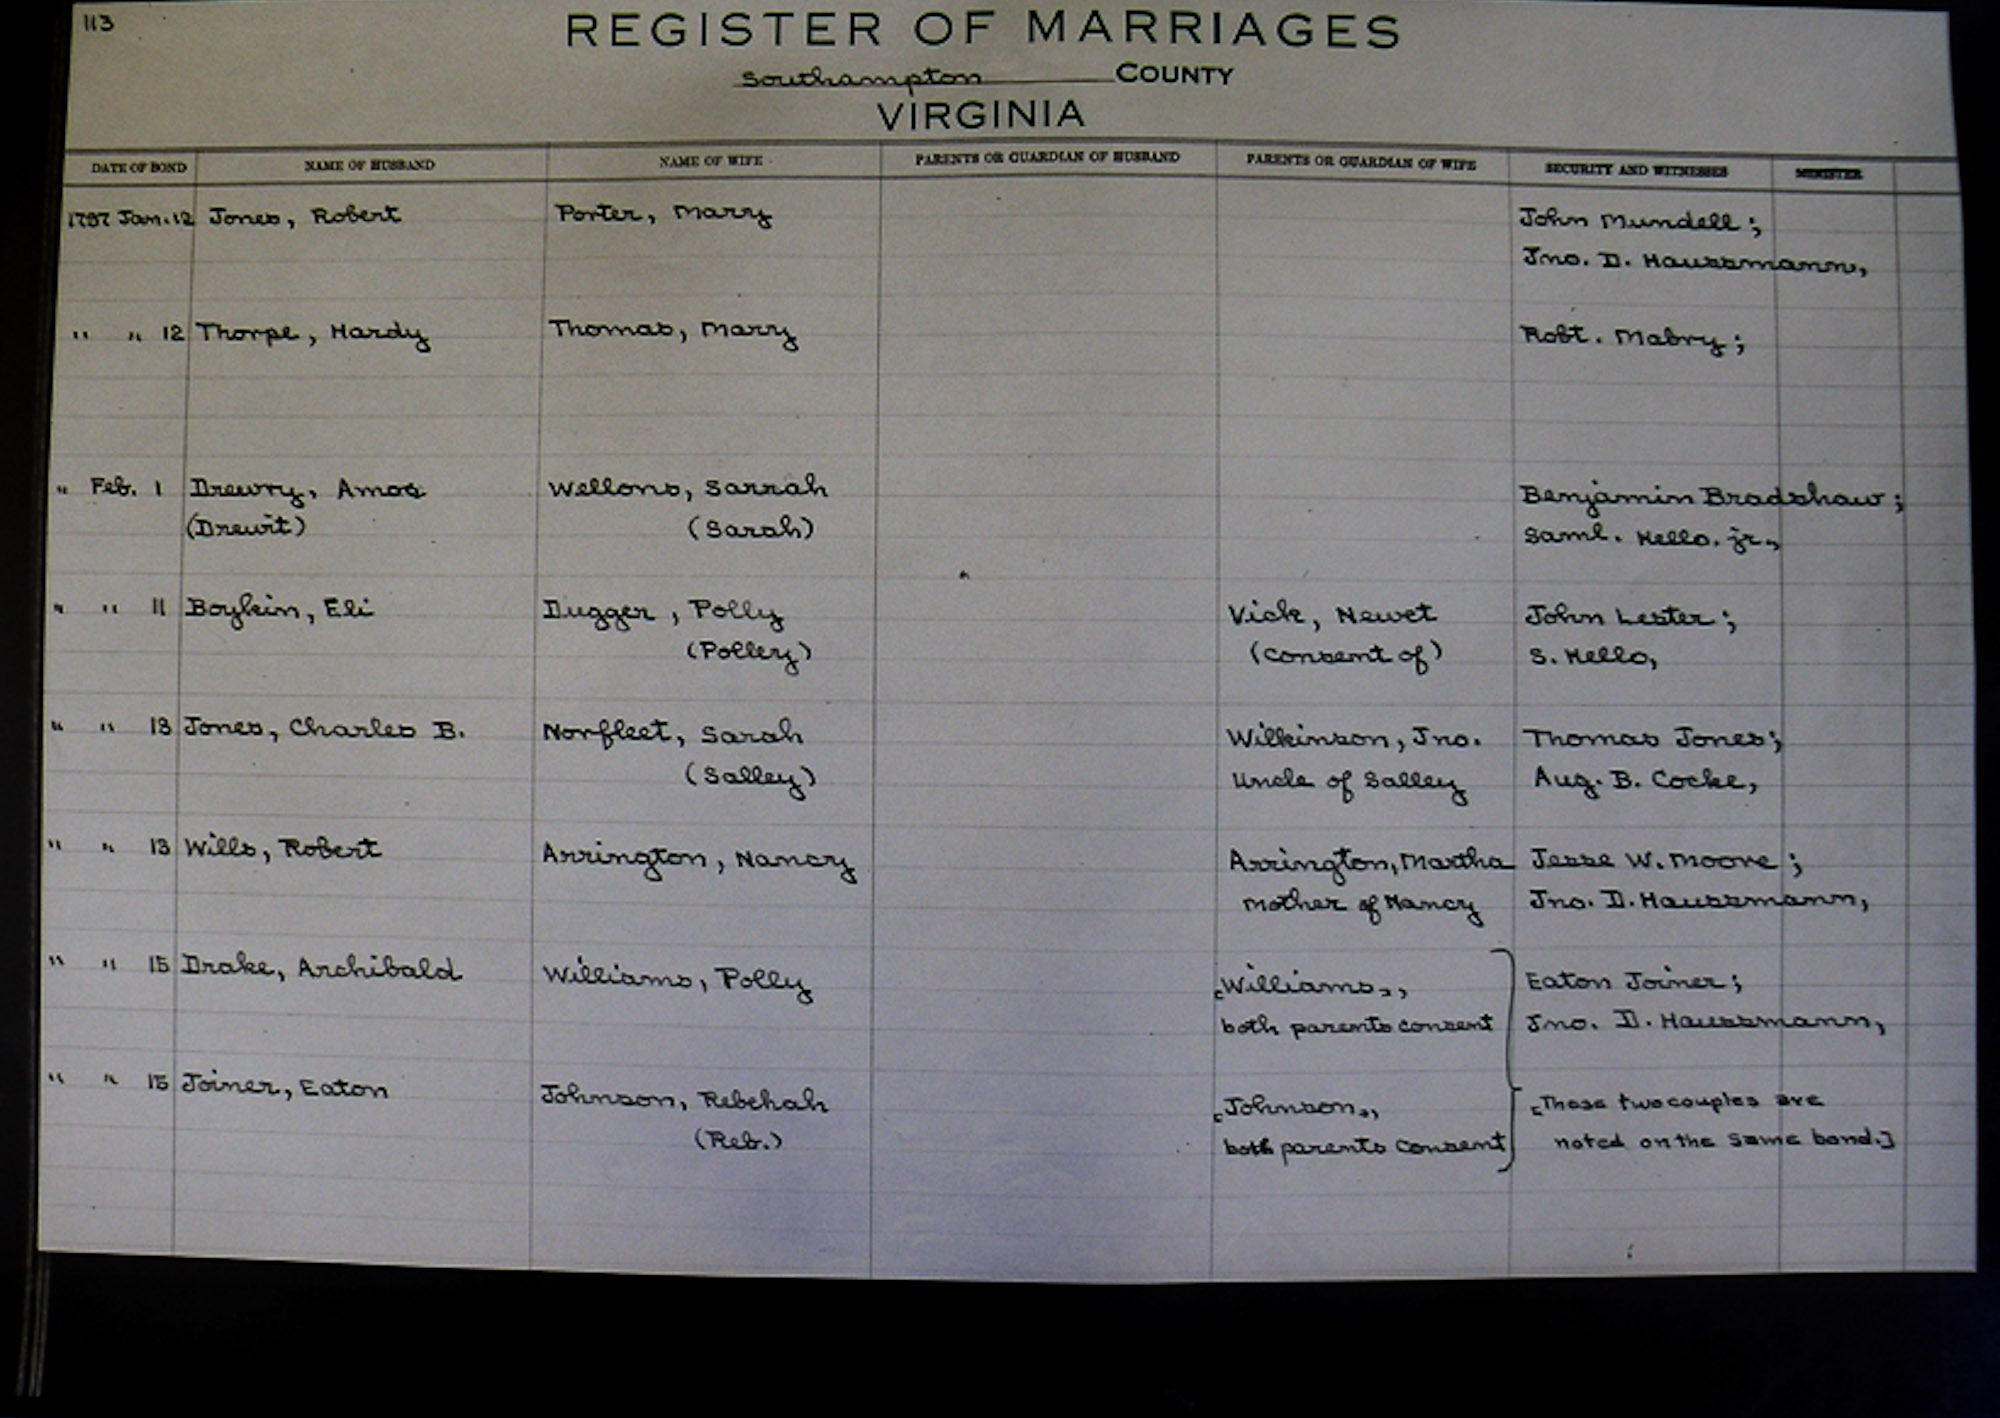 113
REGISTER OF MARRIAGES
Southampton COUNTY
VIRGINIA
DATE OF BOND NAME OF HUSBAND NAME OF WIFE PARENTS OR GUARDIAN OF HUSBAND PARENTS OR GUARDIAN OF WIFE SECURITY AND WITNESSES MINISTER
1797 Jan. 12 Jones, Robert Porter, Marry John Mundell;
Jno. D. Haussmann,
" " 12 Thorpe, Hardy Thomas, Mary Robt. Mabry;
" Feb. 1 Drewry, Amos Wellons, Sarrah Benjamin Bradshaw;
(Drewit) (Sarah) Saml. Kello. jr.,
" " 11 Boykin, Eli Dugger, Polly Vick, Newet John Lester;
(Polley) (consent of) S. Kello,
" " 13 Jones, Charles B. Norfleet, Sarah Wilkinson, Jno. Thomas Jones;
(Salley) Uncle of Salley Aug. B. Cocke,
" " 13 Wills, Robert Arrington, Nancy Arrington, Martha Jesse W. Moore;
mother of Nancy Jno. D. Haussmann,
" " 15 Drake, Archibald Williams, Polly [Williams], Eaton Joiner;
both parents consent Jno. D. Haussmann,
" " 15 Joiner, Eaton Johnson, Rebekah [Johnson], [These two couples are
(Reb.) both parents consent noted on the same bond.]